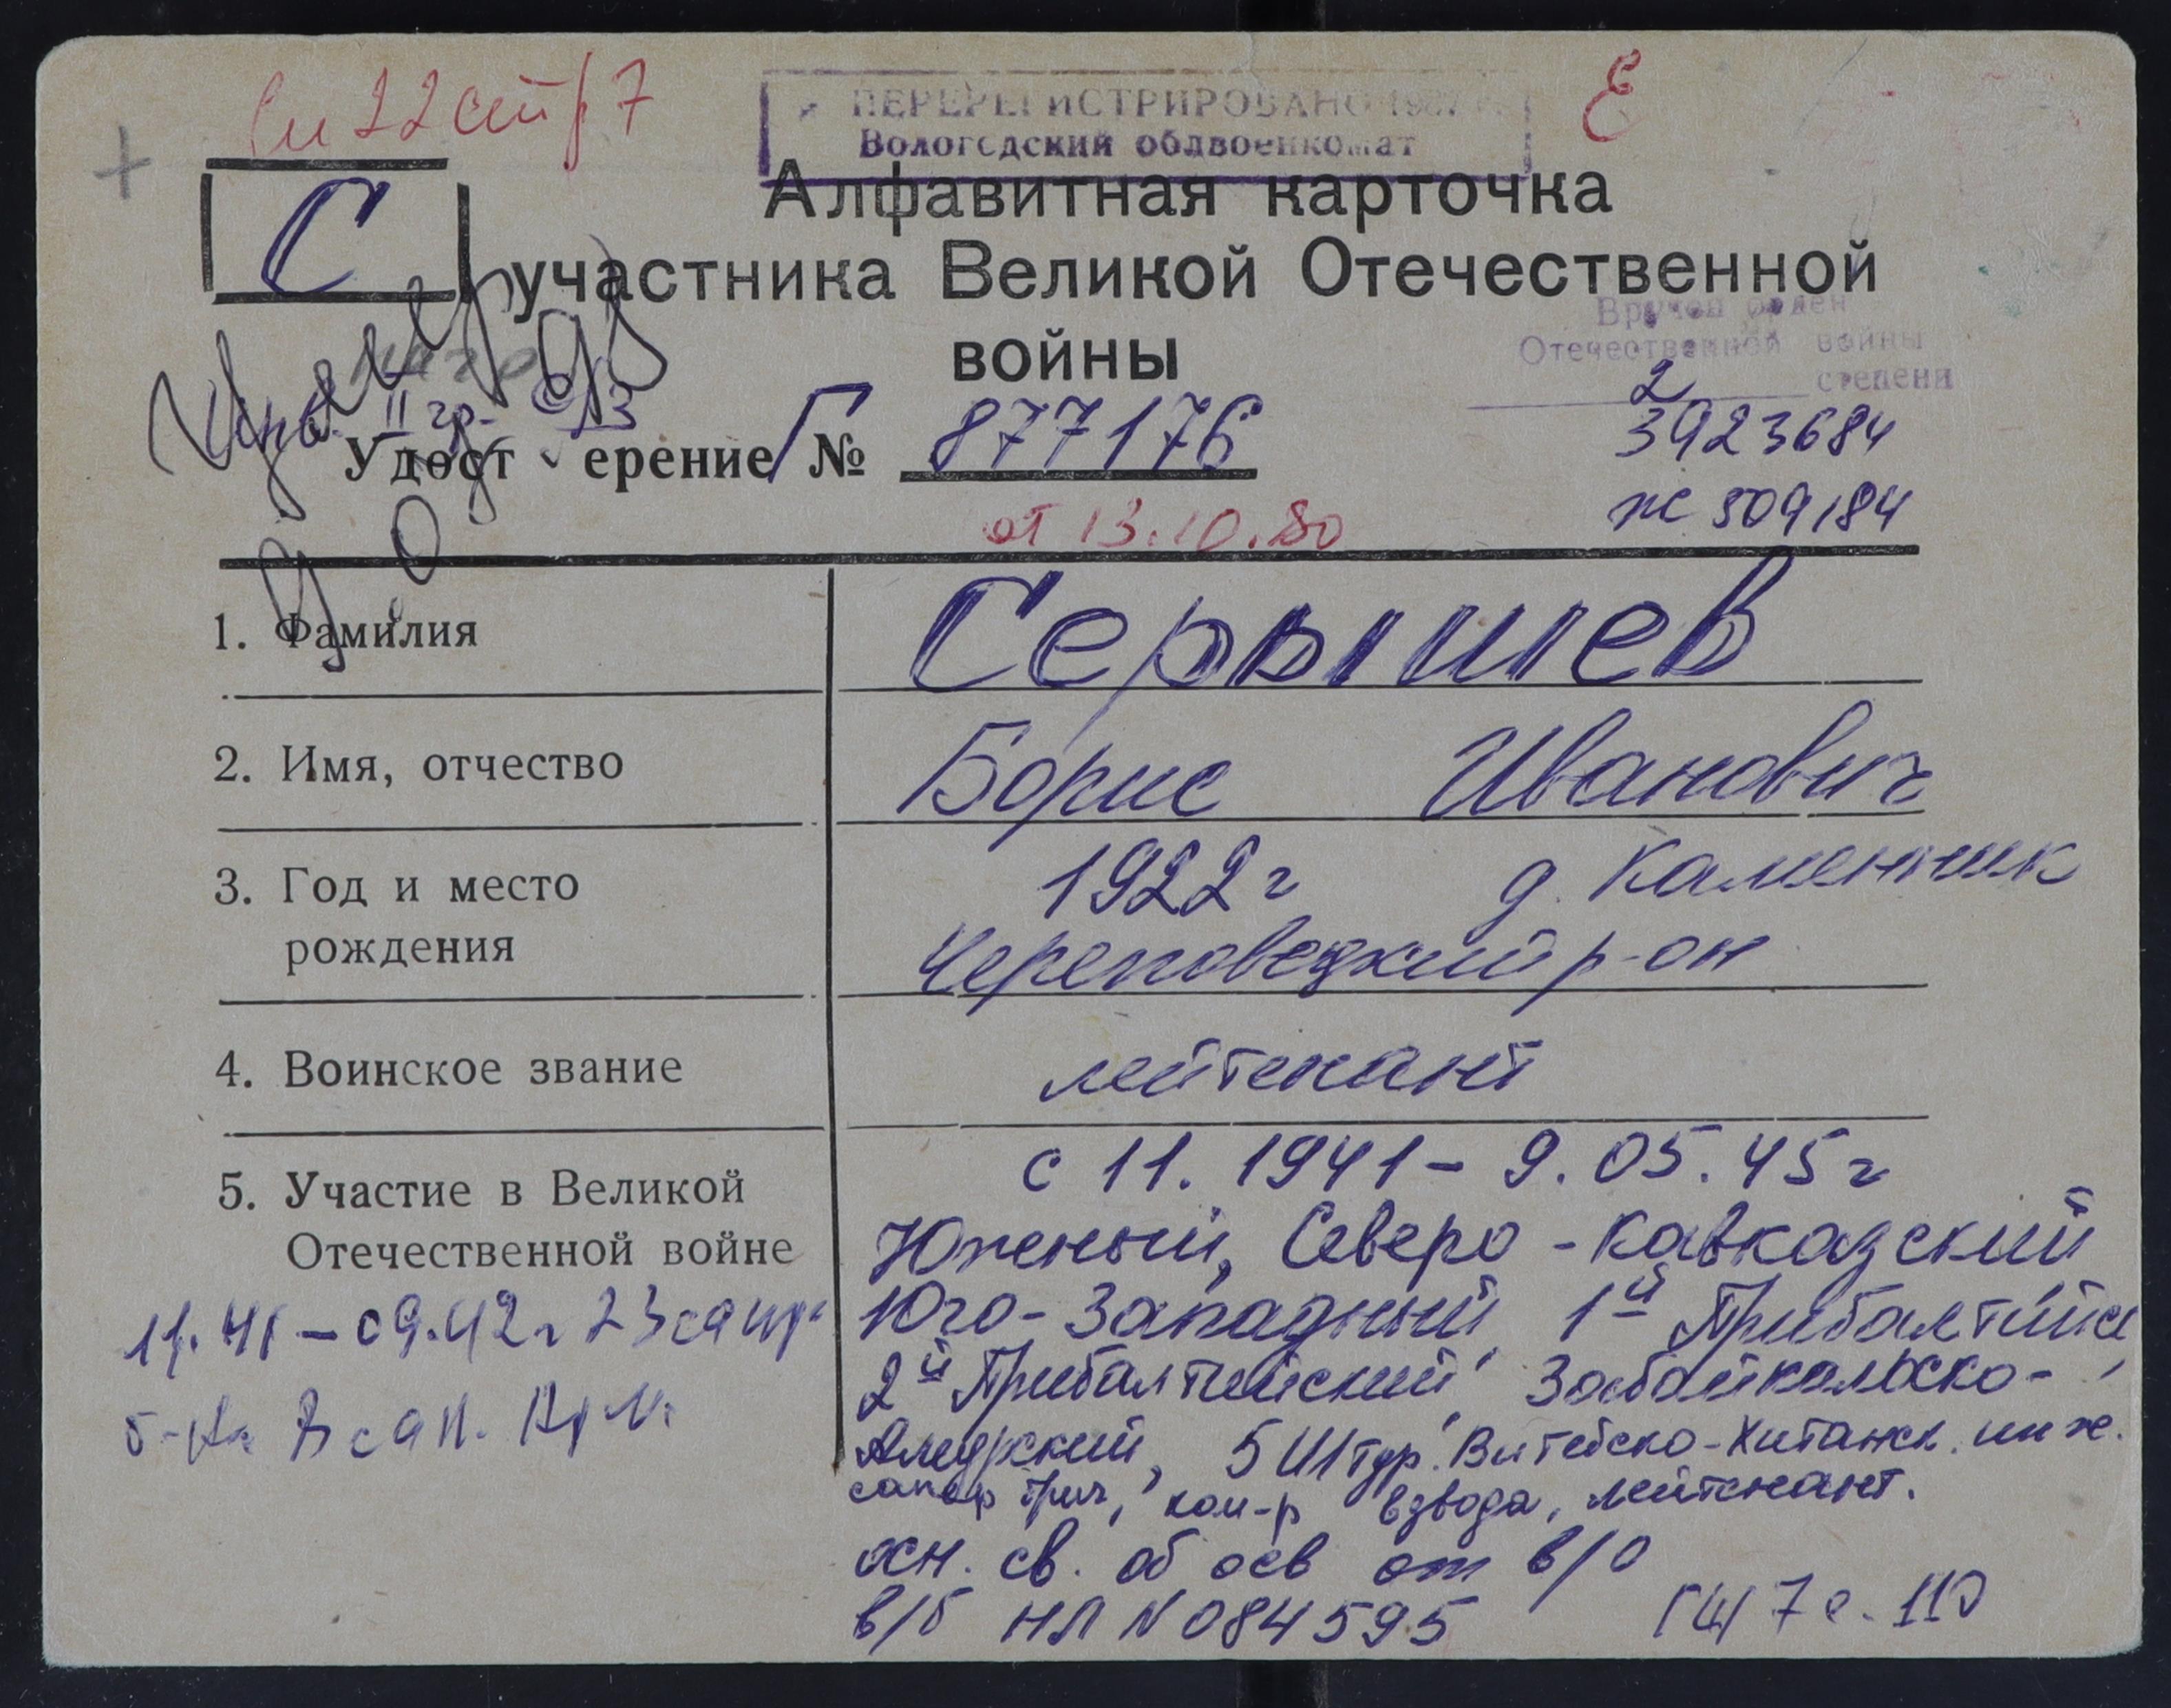 22 стр 7
Е
ПЕРЕРЕГИСТРИРОВАНО
Вологодский облвоенкомат
С
Алфавитная карточка
участника Великой Отечественной
войны
Вручен орден
Отечественной войны
2 степени
3923684
ж 509184
II гр.
Удостоверение Г № 877176
от 13.10.80
1. Фамилия Серышев
2. Имя, отчество Борис Иванович
3. Год и место рождения 1922 г д. Каменник
Череповецкий р-он
4. Воинское звание лейтенант
5. Участие в Великой
Отечественной войне
с 11. 1941 - 9. 05. 45 г
Южный, Северо-Кавказский
Юго-Западный, 1й Прибалтийс
2й Прибалтийский, Забайкальско-
Амурский, 5 Штур. Витебско-Хинганск. инж.
сапер бриг, ком-р взвода, лейтенант.
осн. св. об осв от в/о
в/б НЛ N 084595
7 с. 110
11.41 - 09.42 г 23 сапр